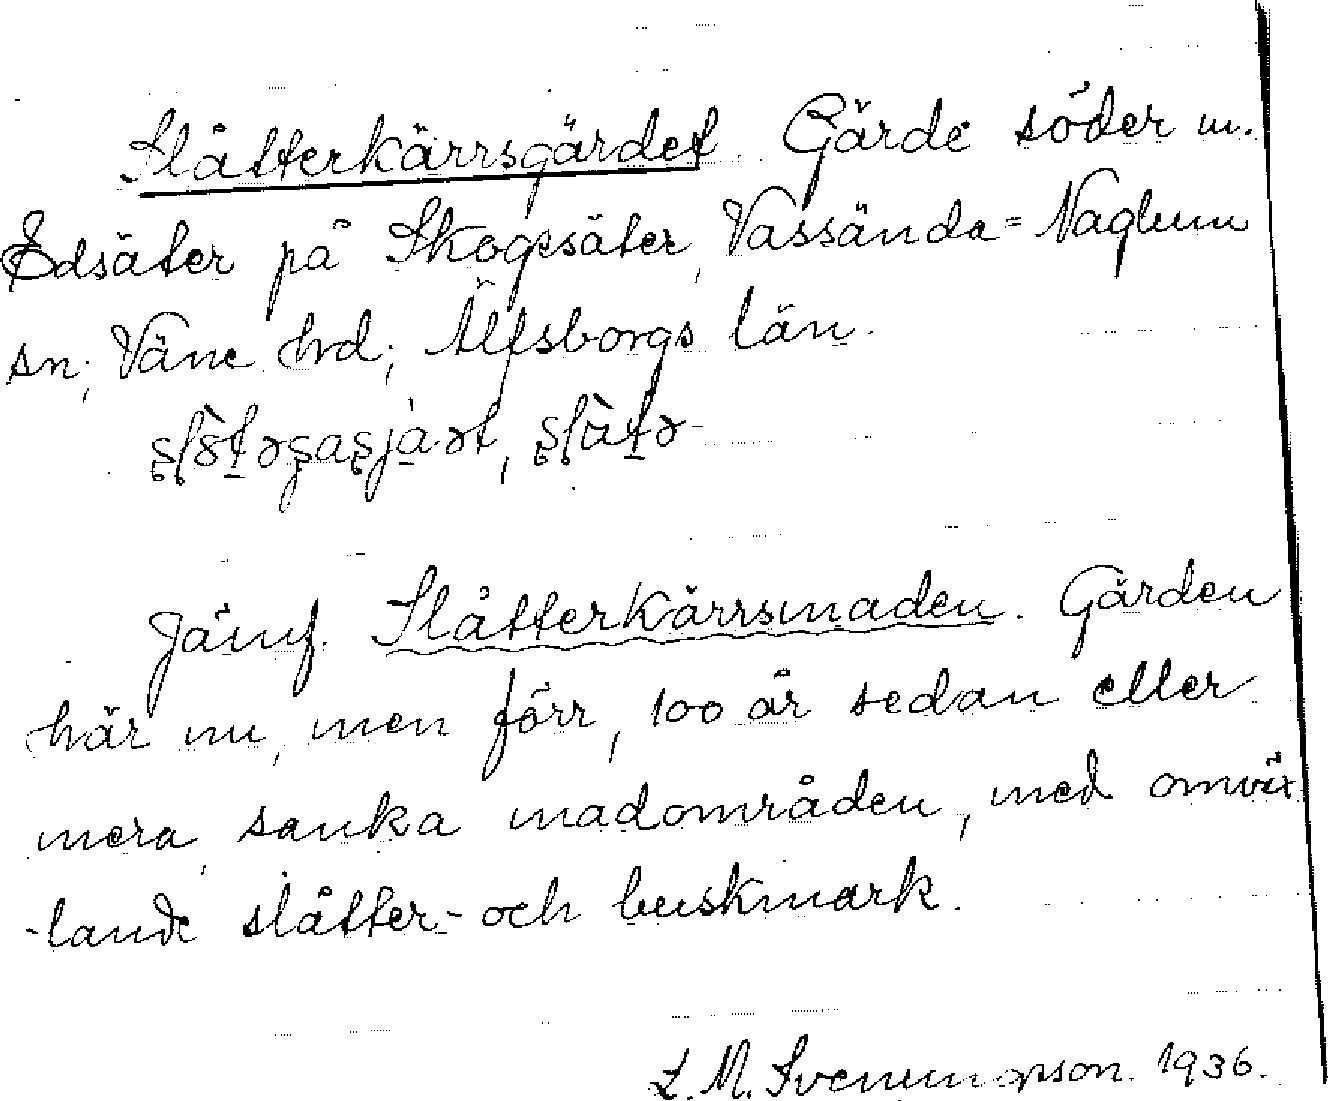 Slåtterkärrsgärdet Gärde söder m.
Edsäter på Skogssäter, Vassända=Naglum
sn; Väne hrd; Älfsborgs län.
Jämf. Slåtterkärrsmaden. Gärden
här nu, men förr, 100 år sedan eller
mera, sanka madområden, med omväx
-lande slåtter- och buskmark.
L. M. Svenungsson. 1936.